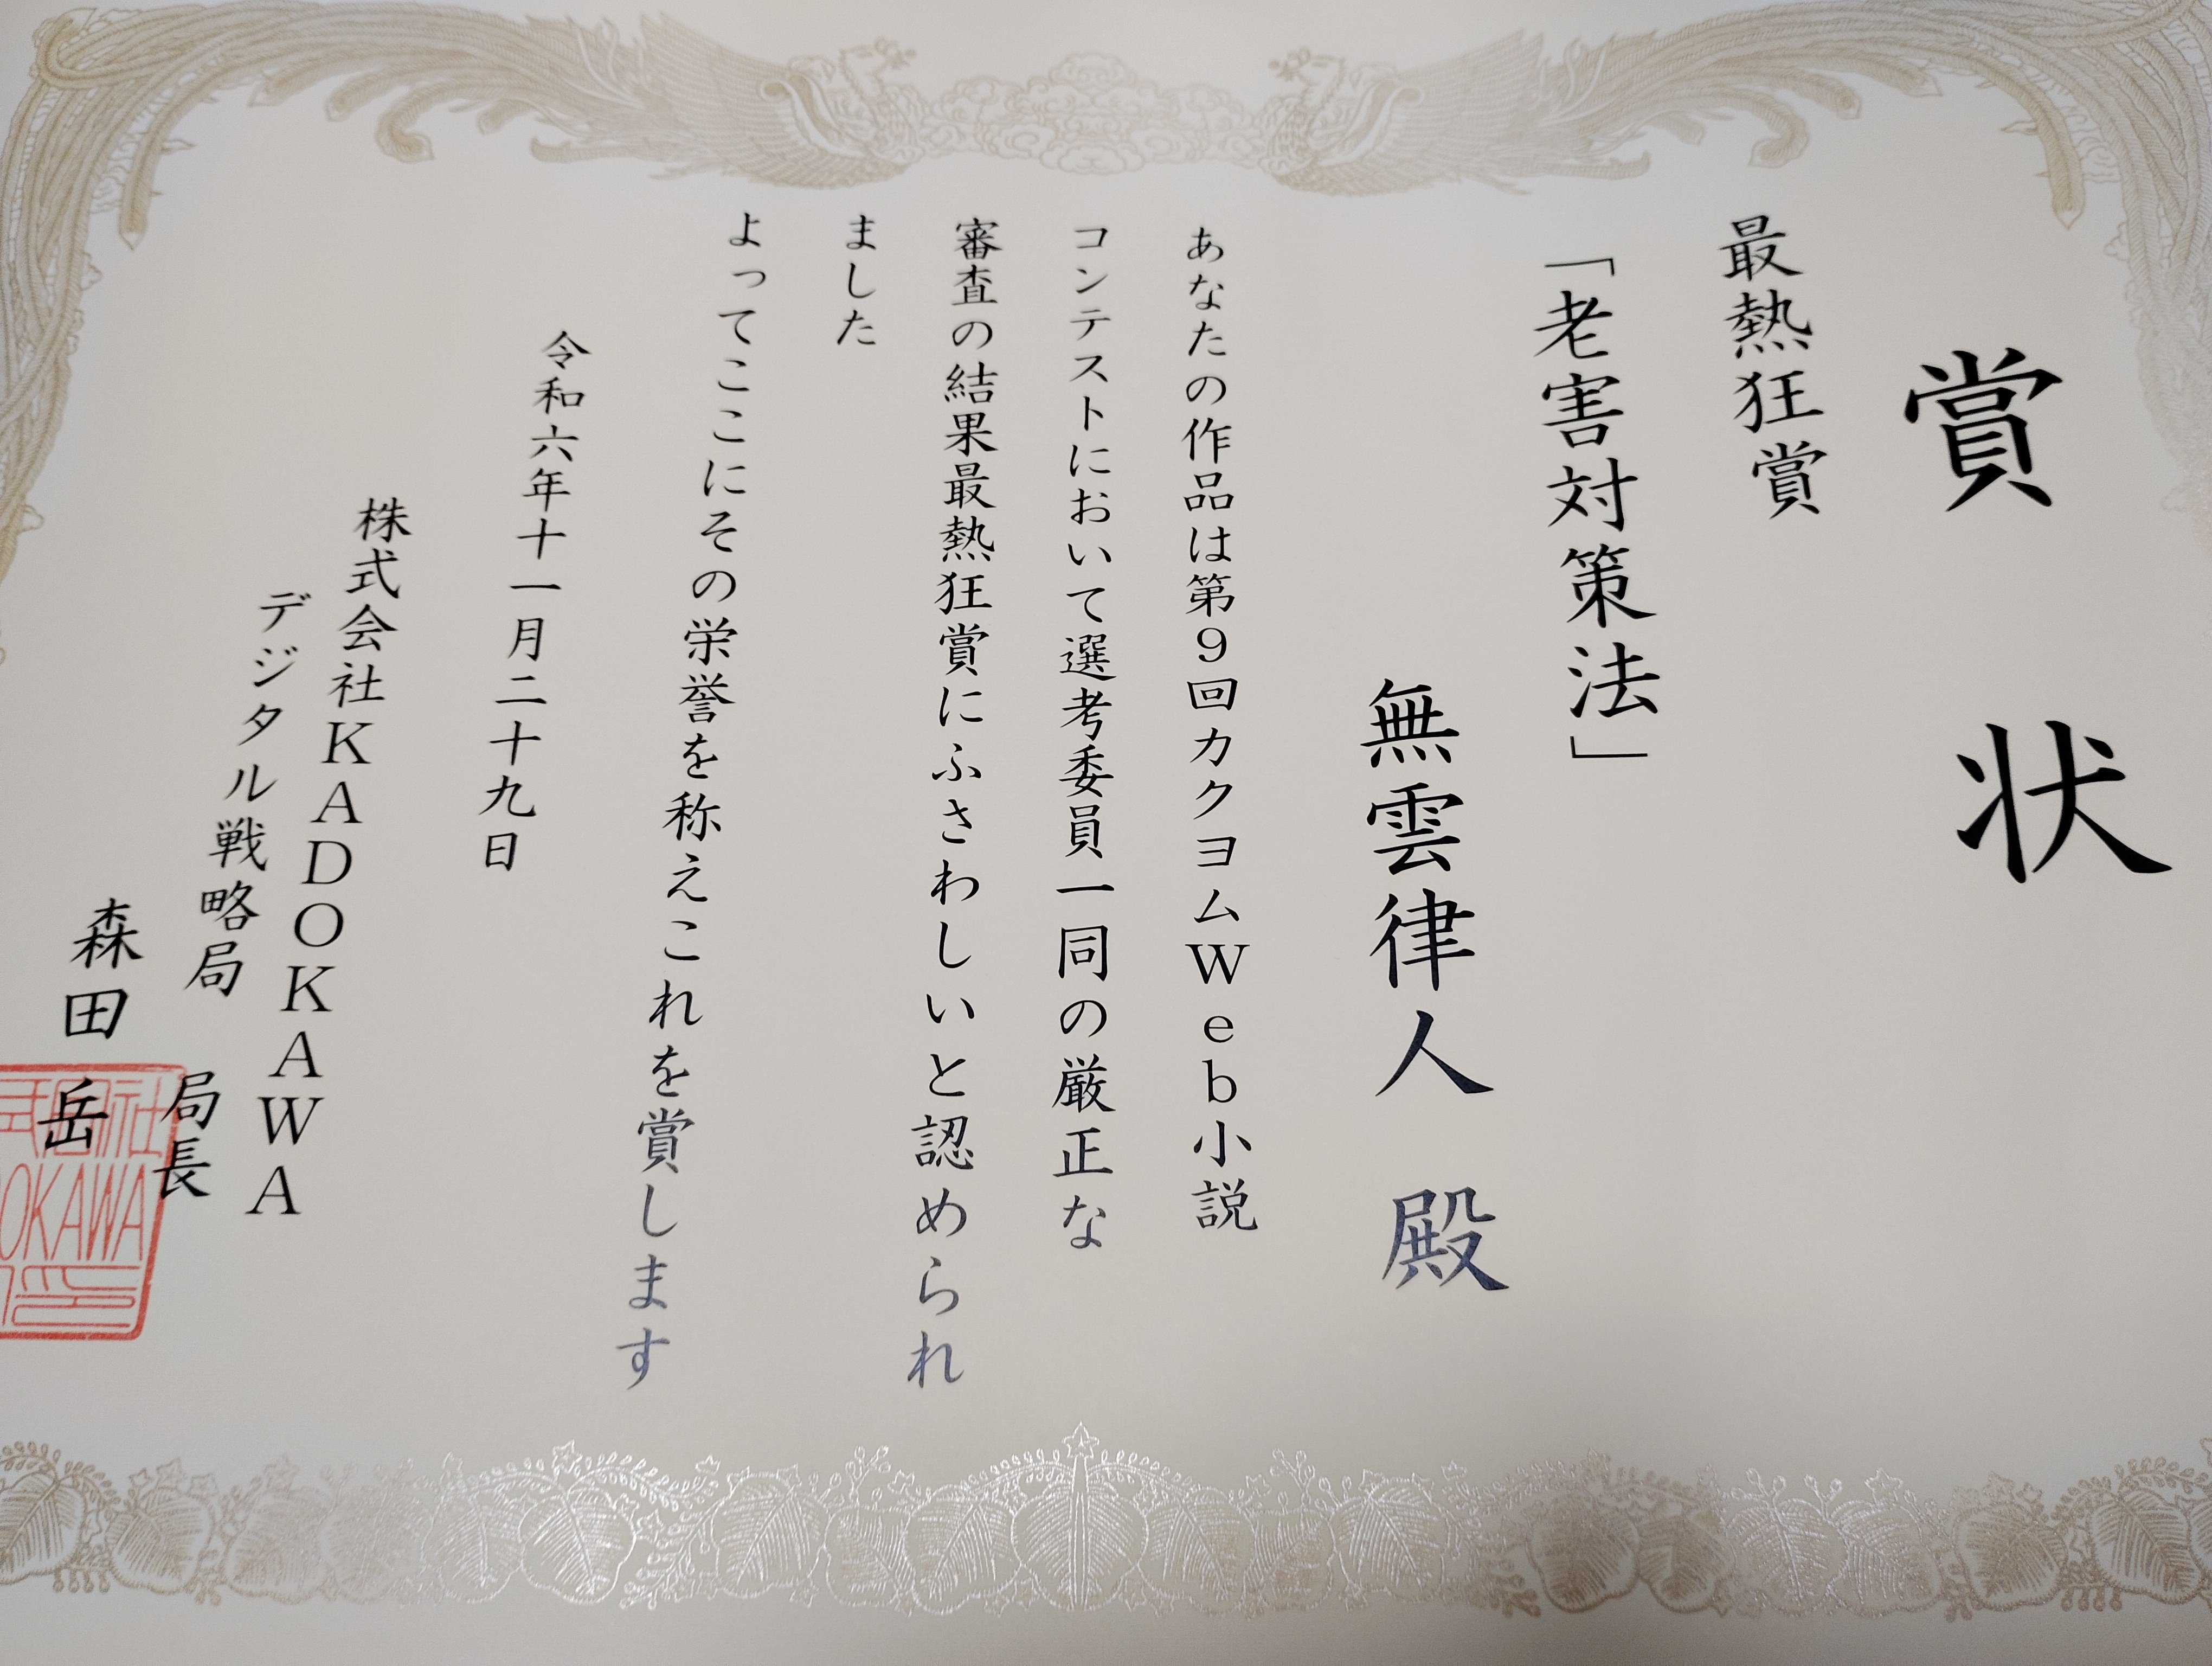 賞状
最熱狂賞
「老害対策法」
無雲律人 殿
あなたの作品は第9回カクヨムWeb小説
コンテストにおいて選考委員一同の厳正な
審査の結果最熱狂賞にふさわしいと認められ
ました
よってここにその栄誉を称えこれを賞します
令和六年十一月二十九日
株式会社KADOKAWA
デジタル戦略局 局長
森田 岳